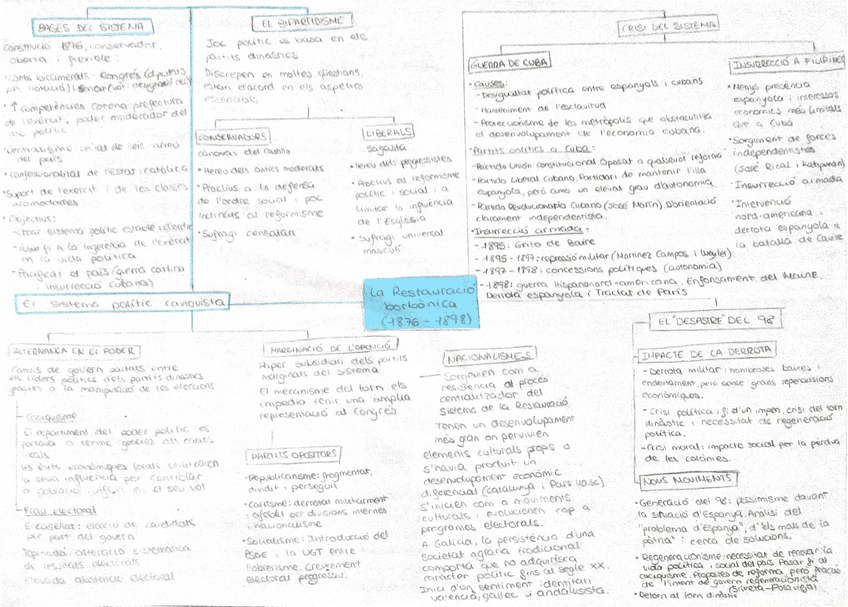 BASES DEL SISTEMA
Constitució 1876, conservador,
oberta i flexible:
↑ competències corona, prefectura
de l'exèrcit, poder moderador del
joc polític
del país
Confessionalitat de l'estat: catòlica
Suport de l'exèrcit i de les classes
acomodades
Objectius:
crear sistema polític estable i d'ordre
en la vida política
Pacificar el país (guerra carlina
insurrecció cubana)
El sistema polític canovista
EL BIPARTIDISME
Joc polític es basa en els
partits dinàstics
Discrepen en moltes qüestions,
estan d'acord en els aspectes
essencials
CONSERVADORS
Cánovas del Castillo
• Hereu dels antics moderats
• Proclius a la defensa
de l'ordre social i poc
inclinats al reformisme
• Sufragi censatari
LIBERALS
Sagasta
• Hereu dels progressistes
• Proclius al reformisme
polític i social i a
limitar la influència
de l'Església
• Sufragi universal
masculí
La Restauració
borbònica
(1876-1898)
CRISI DEL SISTEMA
GUERRA DE CUBA
• Causes:
- Desigualtat política entre espanyols i cubans
- Manteniment de l'esclavitud
- Proteccionisme de les metròpolis que obstaculitza
el desenvolupament de l'economia cubana.
• Partits polítics a Cuba:
- Partido Unión Constitucional. Oposat a qualsevol reforma
- Partido Liberal Cubano. Partidari de mantenir l'illa
espanyola, però amb un elevat grau d'autonomia.
- Partido Revolucionario Cubano (José Martín). D'orientació
clarament independentista.
• Insurrecció armada:
- 1895: Grito de Baire
- 1895-1897: repressió militar (Martínez Campos i Weyler)
- 1897-1898: concessions polítiques (autonomia)
- 1898: guerra Hispanonord-americana. Enfonsament del Maine.
Derrota espanyola i Tractat de París
INSURRECCIÓ A FILIPINES
• Menys presència
espanyola i interessos
econòmics més limitats
que a Cuba
• Sorgiment de forces
independentistes
(José Rizal i Katipunan)
• Insurrecció armada
• Intervenció
nord-americana i
derrota espanyola a
la batalla de Cavite
ALTERNANÇA EN EL PODER
Canvis de govern pactats entre
els líders polítics dels partits dinàstics
gràcies a la manipulació de les eleccions
Caciquisme
El repartiment del poder polític es
portava a terme gràcies als cacics
locals
a població influir en el seu vot
Frau electoral
Encasellat: elecció de candidats
per part del govern
Tupinada: alteració sistemàtica
de resultats electorals
Elevada abstenció electoral
MARGINACIÓ DE L'OPOSICIÓ
Paper subsidiari dels partits
marginals del sistema
El mecanisme del torn els
impedia tenir una àmplia
representació al Congrés
PARTITS OPOSITORS
• Republicanisme: fragmentat,
dividit i perseguit
• Carlisme: derrotat militarment
i afeblit per divisions internes
i nacionalisme
• Socialisme: Introducció del
PSOE i la UGT entre
l'obrerisme. Creixement
electoral progressiu.
NACIONALISMES
Sorgeixen com a
resistència al procés
centralitzador del
Sistema de la Restauració
Tenen un desenvolupament
més gran on pervivien
elements culturals propis o
s'havia produït un
desenvolupament econòmic
diferencial (Catalunya i País Vasc)
S'inicien com a moviments
culturals i evolucionen cap a
programes electorals.
A Galícia, la persistència d'una
societat agrària tradicional
comporta que no adquireixi
caràcter polític fins al segle XX.
Inici d'un sentiment identitari
valencià, gallec i andalusista.
EL "DESASTRE" DEL 98
IMPACTE DE LA DERROTA
- Derrota militar: nombroses baixes i
endeutament, però sense grans repercussions
econòmiques.
- Crisi política: fi d'un imperi, crisi del torn
dinàstic i necessitat de regeneració
política.
- Crisi moral: impacte social per la pèrdua
de les colònies.
NOUS MOVIMENTS
• Generació del 98: pessimisme davant
la situació d'Espanya. Anàlisi del
"problema d'Espanya", d'"els mals de la
pàtria" i cerca de solucions.
• Regeneracionisme: necessitat de renovar la
vida política i social del país. Posar fi al
caciquisme. Propostes de reforma, però fracàs
de l'intent de govern regeneracionista
(Silvela-Polavieja)
• Retorn al torn dinàstic